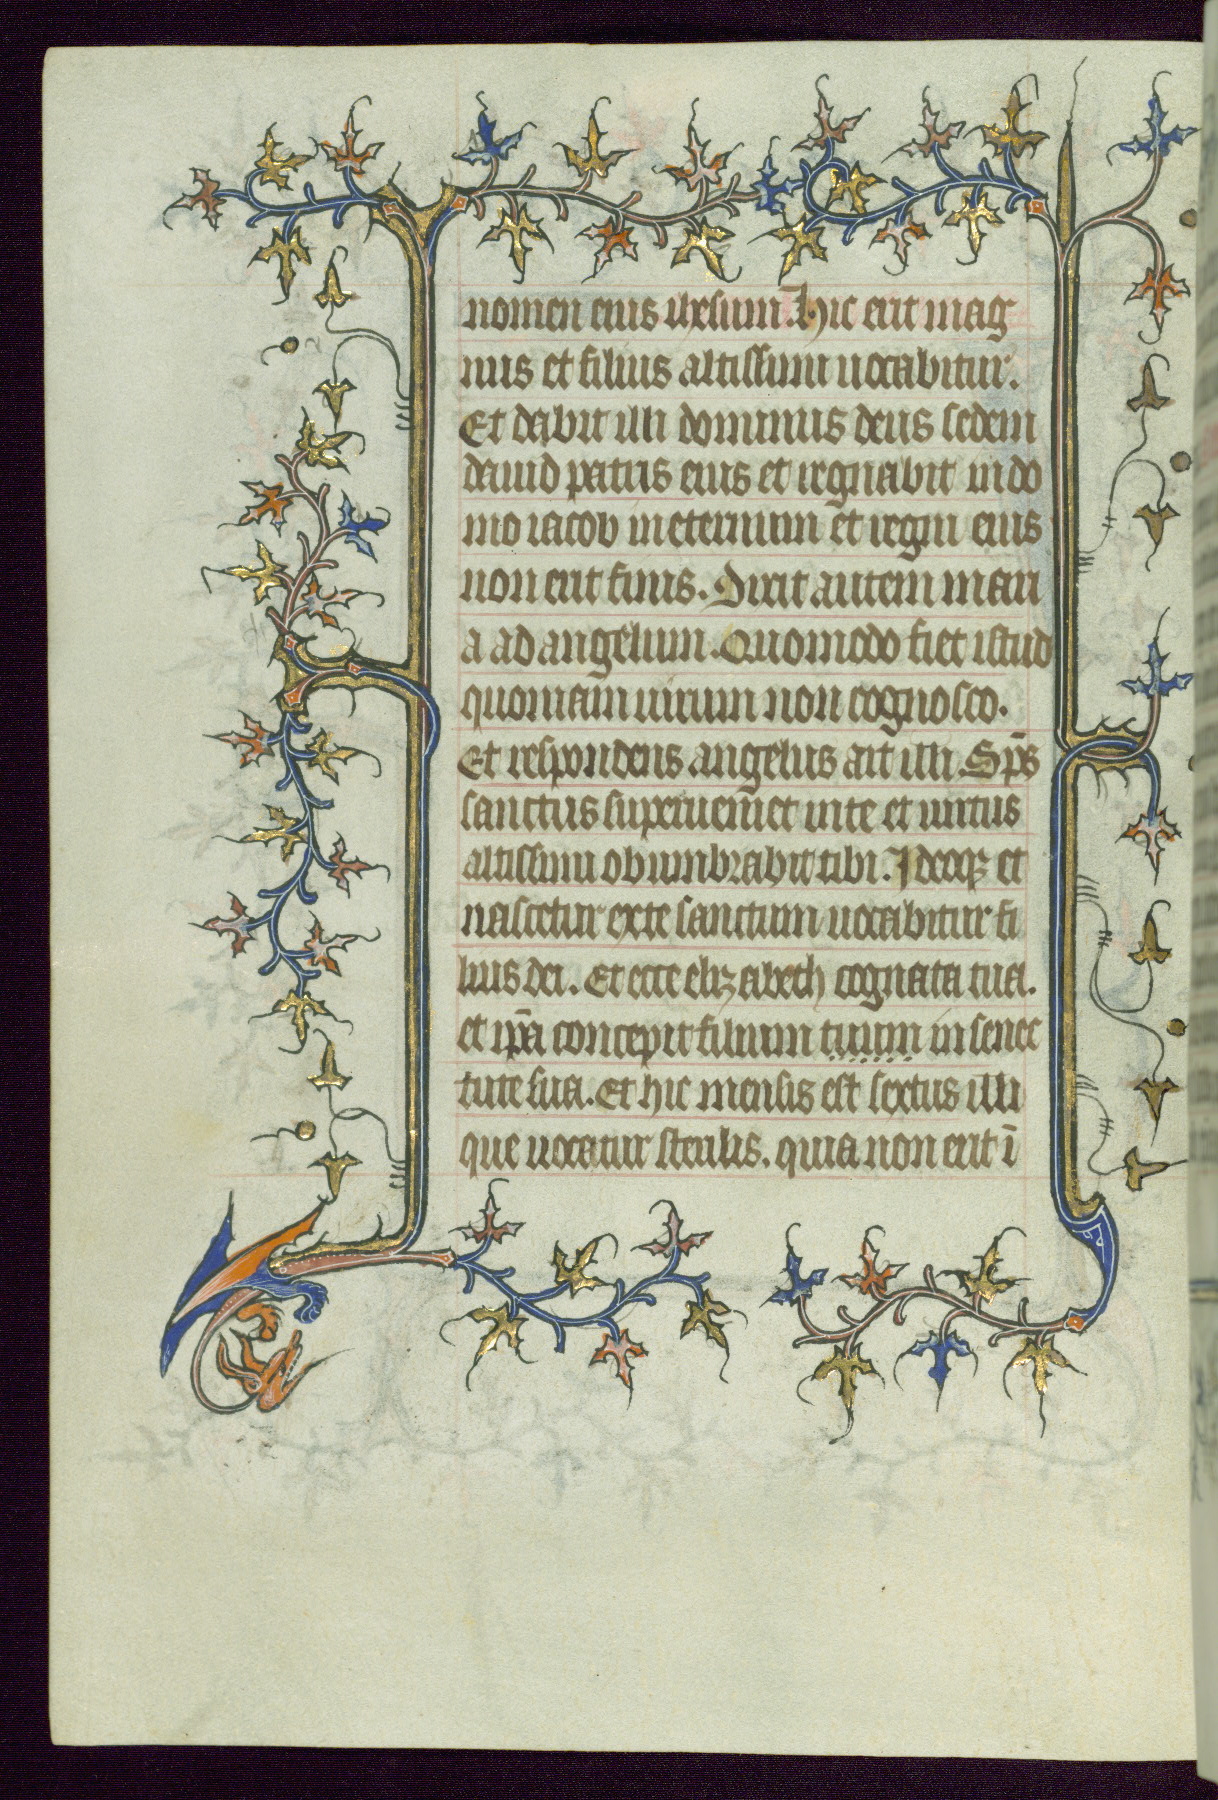 nomen eius ihesum. Hic erit mag
nus et filius altissimi uocabitur.
Et dabit illi dominus deus sedem
dauid patris eius et regnabit in do
mo iacob in eternum et regni eius
non erit finis. Dixit autem mari
a ad angelum. Quomodo fiet istud
quoniam uirum non cognosco.
Et respondens angelus ait illi. Sp̄s
sanctus superueniet in te et uirtus
altissimi obumbrabit tibi. Ideoqꝫ et
nascetur ex te sanctum uocabitur fi
lius dei. Et ecce elizabeth cognata tua.
et ip̄a concepit filium tuum in senec
tute sua. Et hic mensis est sextus illi
que uocatur sterilis. quia non erit ī